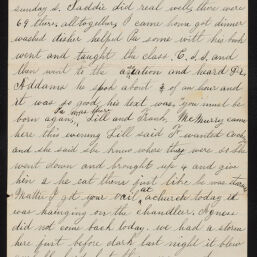 sunday s. Taddie did real well, there were
69 there, alltogether, I came home got dinner
washed dishes helped the some with his book
went and taught the class, C. S. S. and
then went to the and heard Dr.
Addams he spok about ¾ of an hour and
it was so good, his text was, you must be
born again, was there Lill and Zach, McMurray came
here this evening Lill said I wanted
and she said she knew where they were so she
went down and brought up 4 and give
him & he eat them just like he was
Mattie I got your at church today it
was hanging on the chandlier. Agness
did not come back today. we had a storm
here just before dark last night it blew